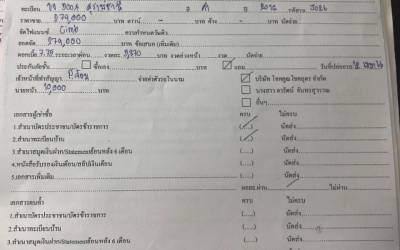 ทะเบียน วจ 9004 สุราษฎร์ธานี สี ดำ ปี 2012 รหัสรถ J026
ราคาขาย 279,000 บาท ดาวน์ - บาท ค้าง - บาท นัดจ่าย
จัดไฟแนนซ์ Cimb กำหนดรับเงิน
ยอดจัด 279,000 บาท ซื้อสนธ (เพิ่มเติม)
ดอกเบี้ย 7.75 ระยะเวลาผ่อน งวด 5,870 บาท งวดล่วงหน้า งวด นัดจ่าย
ประกันภัยชั้น ซื้อเอง บาท แถม
เจ้าหน้าที่ทำสัญญา จ่ายค่าตัวรถในนาม บริษัท โชคคูณโชคอุดร จำกัด
นายหน้า 10,000 บาท นางสาว
อื่นๆ
เอกสารผู้เช่าซื้อ ครบ ไม่ครบ
1.สำเนาบัตรประชาชน/บัตรข้าราชการ (.....) นัดส่ง
2.สำเนาทะเบียนบ้าน (.....) นัดส่ง
3.สำเนาสมุดเงินฝาก/Statementย้อนหลัง 6 เดือน (.....) นัดส่ง
4.หนังสือรับรองเงินเดือน/สลิปเงินเดือน (.....) นัดส่ง
5.เอกสารเพิ่มเติม (.....) นัดส่ง
คอยผ่าน ไม่ผ่าน
เอกสารคนค้ำ ครบ ไม่ครบ
1.สำเนาบัตรประชาชน/บัตรข้าราชการ (.....) นัดส่ง
2.สำเนาทะเบียนบ้าน (.....) นัดส่ง
3.สำเนาสมุดเงินฝาก/Statementย้อนหลัง 6 เดือน (.....) นัดส่ง